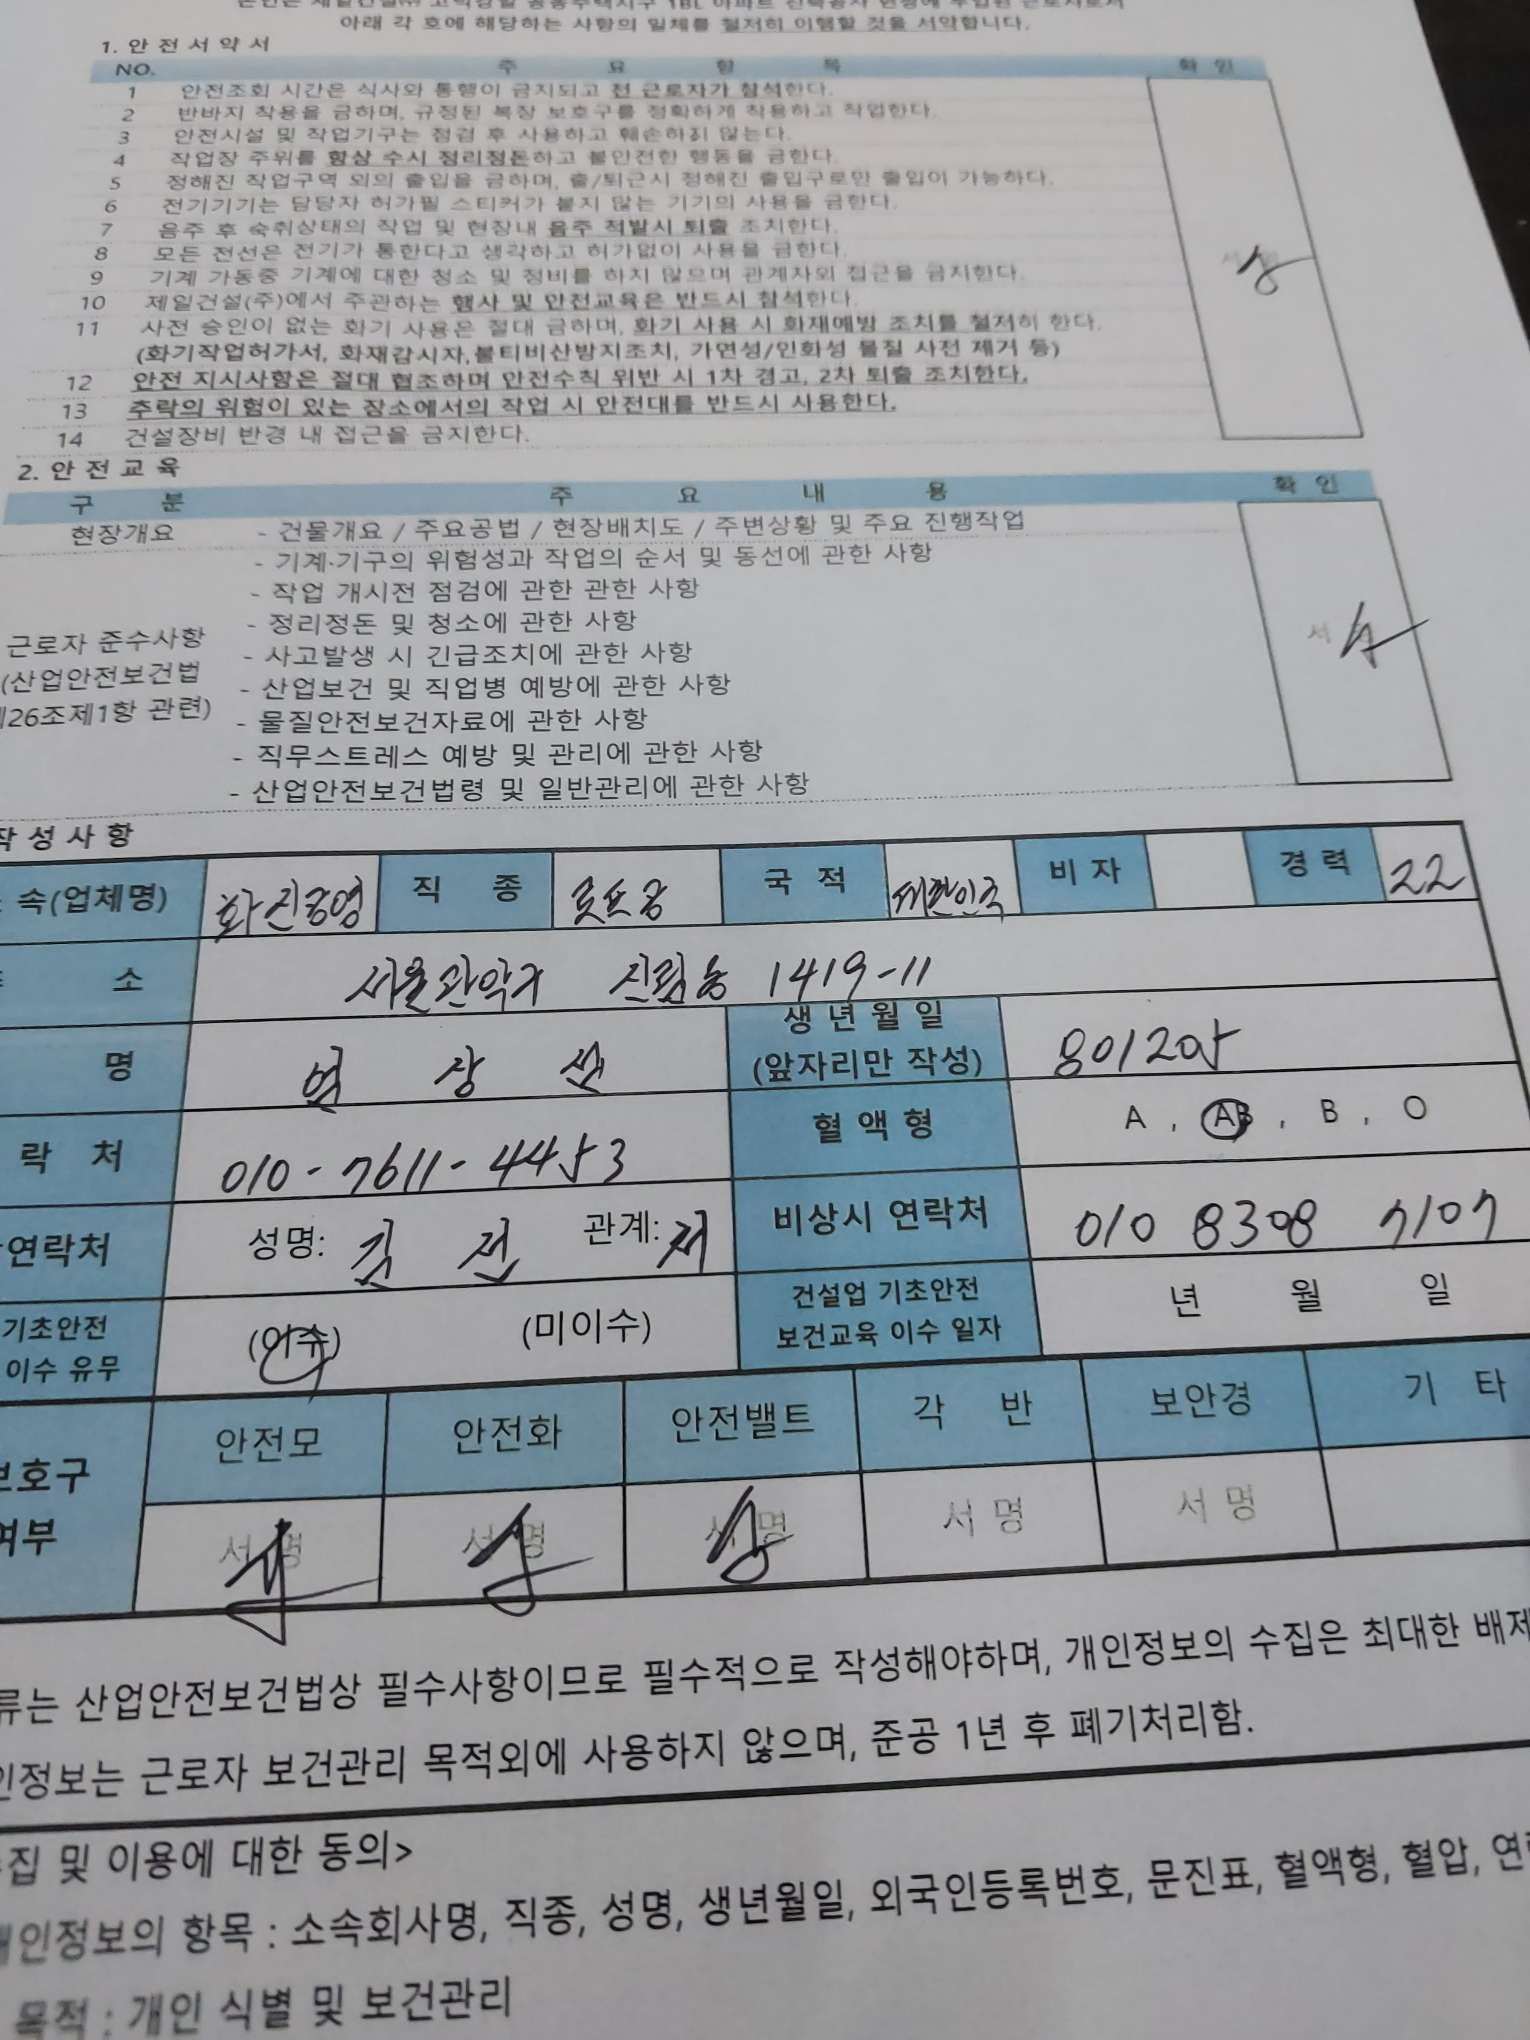 아래 각 호에 해당하는 사항의 일체를 철저히 이행할 것을 서약합니다.
1. 안 전 서 약 서
NO. 주 요 항 목 확 인
1 안전조회 시간은 식사와 통행이 금지되고 전 근로자가 참석한다.
2 반바지 착용을 금하며, 규정된 복장 보호구를 정확하게 착용하고 작업한다.
3 안전시설 및 작업기구는 점검 후 사용하고 훼손하지 않는다.
4 작업장 주위를 항상 수시 정리정돈하고 불안전한 행동을 금한다.
5 정해진 작업구역 외의 출입을 금하며, 출/퇴근시 정해진 출입구로만 출입이 가능하다.
6 전기기기는 담당자 허가필 스티커가 붙지 않는 기기의 사용을 금한다.
7 음주 후 숙취상태의 작업 및 현장내 음주 적발시 퇴출 조치한다.
8 모든 전선은 전기가 통한다고 생각하고 허가없이 사용을 금한다.
9 기계 가동중 기계에 대한 청소 및 정비를 하지 않으며 관계자외 접근을 금지한다.
10 제일건설(주)에서 주관하는 행사 및 안전교육은 반드시 참석한다.
11 사전 승인이 없는 화기 사용은 절대 금하며, 화기 사용 시 화재예방 조치를 철저히 한다.
(화기작업허가서, 화재감시자,불티비산방지조치, 가연성/인화성 물질 사전 제거 등)
12 안전 지시사항은 절대 협조하며 안전수칙 위반 시 1차 경고, 2차 퇴출 조치한다.
13 추락의 위험이 있는 장소에서의 작업 시 안전대를 반드시 사용한다.
14 건설장비 반경 내 접근을 금지한다.
2. 안 전 교 육
구 분 주 요 내 용 확 인
현장개요 - 건물개요 / 주요공법 / 현장배치도 / 주변상황 및 주요 진행작업
- 기계·기구의 위험성과 작업의 순서 및 동선에 관한 사항
- 작업 개시전 점검에 관한 관한 사항
- 정리정돈 및 청소에 관한 사항
근로자 준수사항 - 사고발생 시 긴급조치에 관한 사항 서
(산업안전보건법 - 산업보건 및 직업병 예방에 관한 사항
26조제1항 관련) - 물질안전보건자료에 관한 사항
- 직무스트레스 예방 및 관리에 관한 사항
- 산업안전보건법령 및 일반관리에 관한 사항
작 성 사 항
속(업체명) 화진공영 직 종 국 적 대한민국 비 자 경 력 22
소 서울관악구 신림동 1419-11
명 생 년 월 일
(앞자리만 작성) 801205
락 처 010-7611-4453 혈 액 형 A , AB , B , O
연락처 성명: 김 전 관계: 처 비상시 연락처 010 8308 7107
기초안전
이수 유무 (이수) (미이수) 건설업 기초안전
보건교육 이수 일자 년 월 일
보호구
여부 안전모 안전화 안전밸트 각 반 보안경 기 타
서 명 서 명 서 명 서 명 서 명
류는 산업안전보건법상 필수사항이므로 필수적으로 작성해야하며, 개인정보의 수집은 최대한 배제
인정보는 근로자 보건관리 목적외에 사용하지 않으며, 준공 1년 후 폐기처리함.
집 및 이용에 대한 동의>
개인정보의 항목 : 소속회사명, 직종, 성명, 생년월일, 외국인등록번호, 문진표, 혈액형, 혈압, 연락
목적 : 개인 식별 및 보건관리